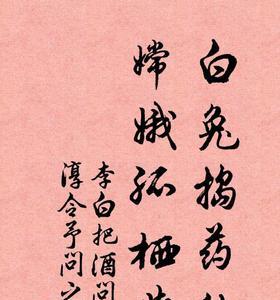 白兔捣药
嫦娥孤栖
李白把酒问
淳令予问之